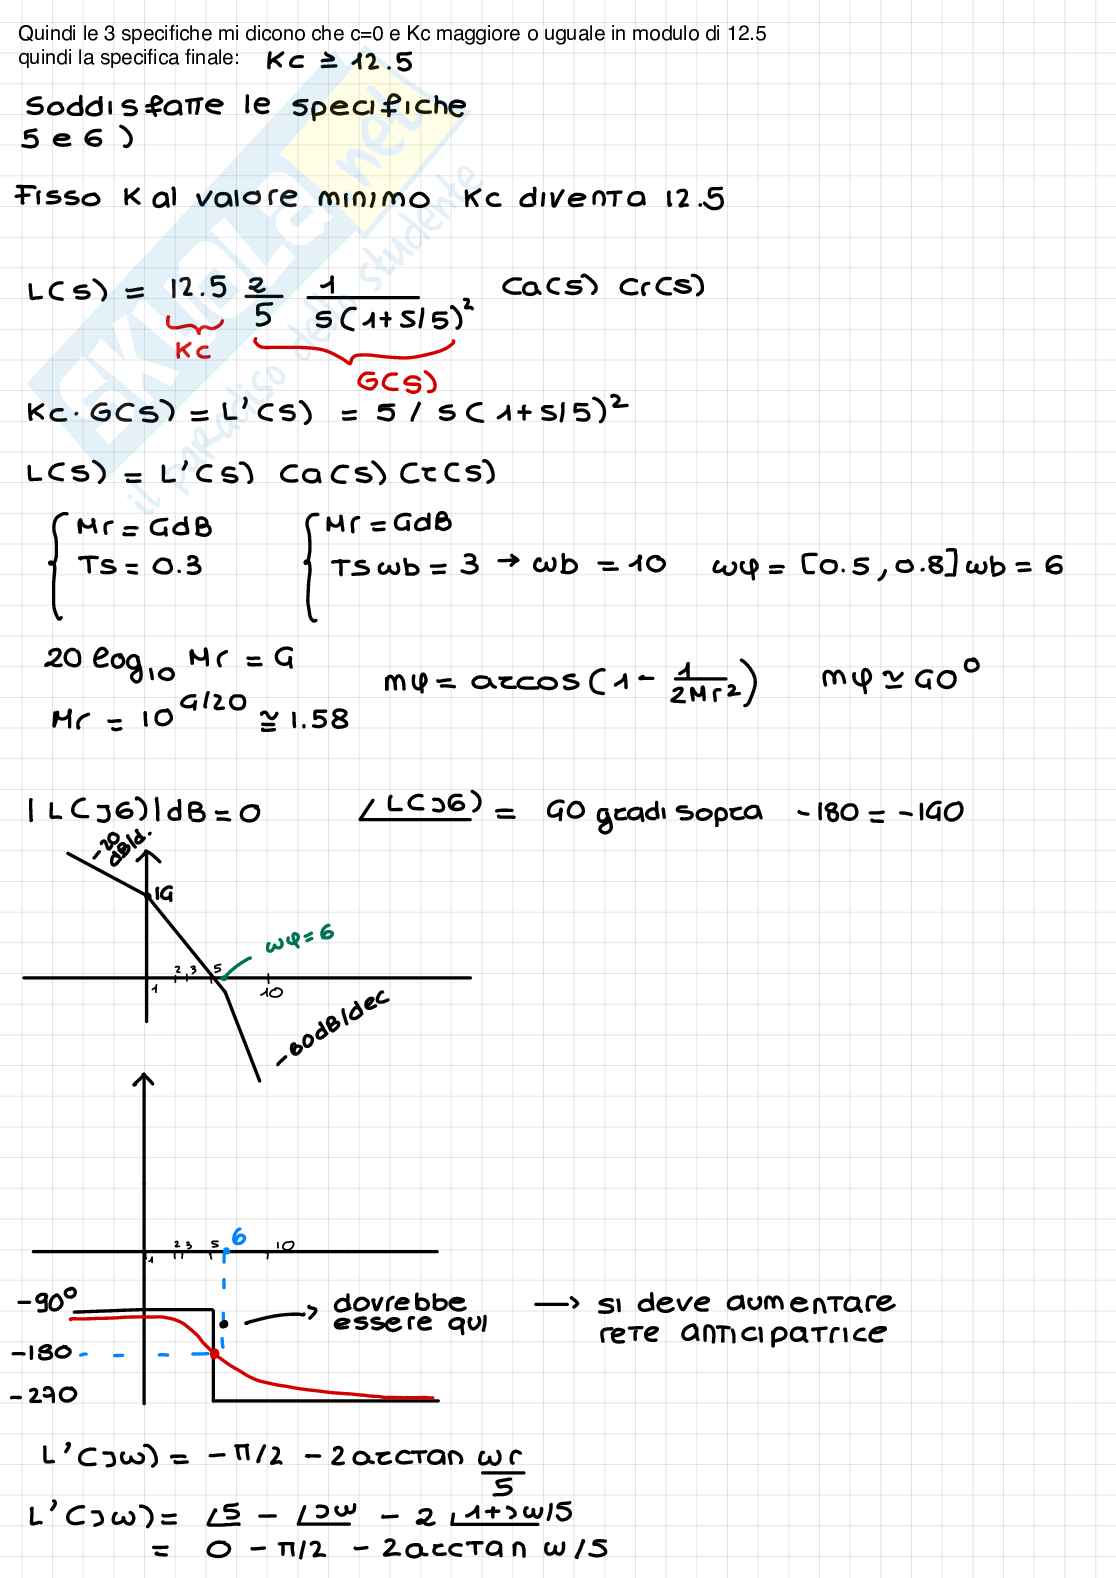 Quindi le 3 specifiche mi dicono che c=0 e Kc maggiore o uguale in modulo di 12.5
quindi la specifica finale: Kc ≥ 12.5
Soddisfatte le specifiche
5 e 6 )
Fisso K al valore minimo Kc diventa 12.5
L(s) = 12.5 2/5 1/s(1+s/5)² Ca(s) Cr(s)
Kc
G(s)
Kc · G(s) = L'(s) = 5 / s(1+s/5)²
L(s) = L'(s) Ca(s) Cr(s)
{ Mr = 4dB { Mr = 4dB
Ts = 0.3 Ts ωb = 3 → ωb = 10 ωφ = [0.5, 0.8] ωb = 6
20 log10 Mr = 4
Mr = 10^4/20 ≅ 1.58 mφ = arcos(1 - 1/2Mr²) mφ ≃ 40°
|L(j6)|dB = 0 ∠L(j6) = 40 gradi sopra -180 = -140
-20 dB/d.
14
ωφ=6
1 2 3 5 10
-60dB/dec
6
1 2 3 5 10
-90°
dovrebbe essere qui → si deve aumentare
rete anticipatrice
-180
-270
L'(jω) = -π/2 - 2 arctan ωr/5
L'(jω) = ∠5 - ∠jω - 2 ∠1+jω/5
= 0 - π/2 - 2 arctan ω/5
SKUOLA.net
il paradiso dello studente